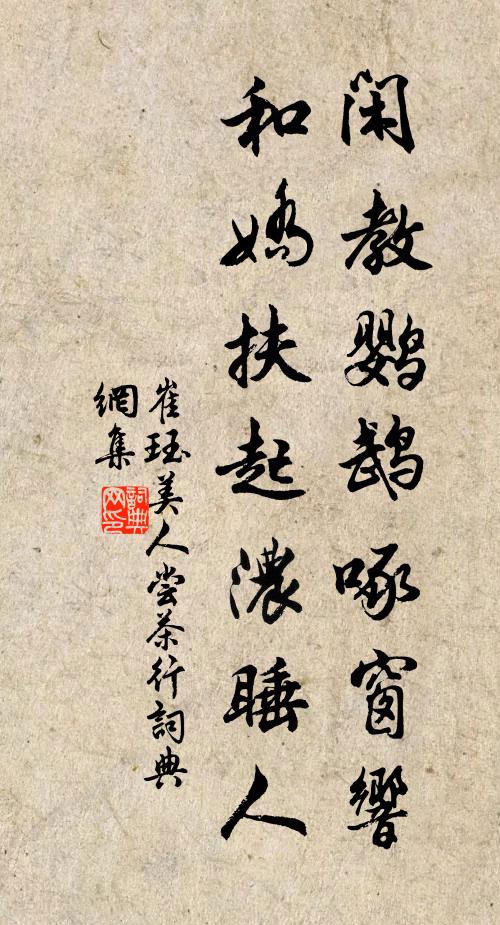 閑教鸚鵡啄窗響
和嬌扶起濃睡人
崔珏美人尝茶行詞典
網集
詞典
网印